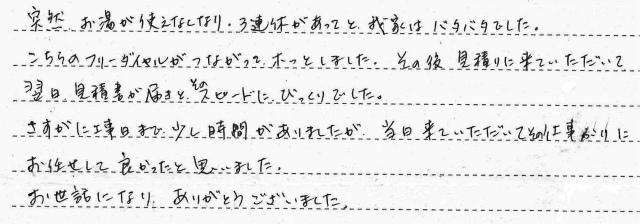 突然 お湯が使えなくなり、3連休があってと 我家は バタバタでした。
こちらのフリーダイヤルがつながって ホッとしました。その後 見積りに来ていただいて
翌日 見積書が届きと そのスピードに びっくりでした。
さすがに工事日まで 少し時間がありましたが 当日 来ていただいてその仕事ぶりに
お任せして 良かったと 思いました。
お世話になり、ありがとうございました。